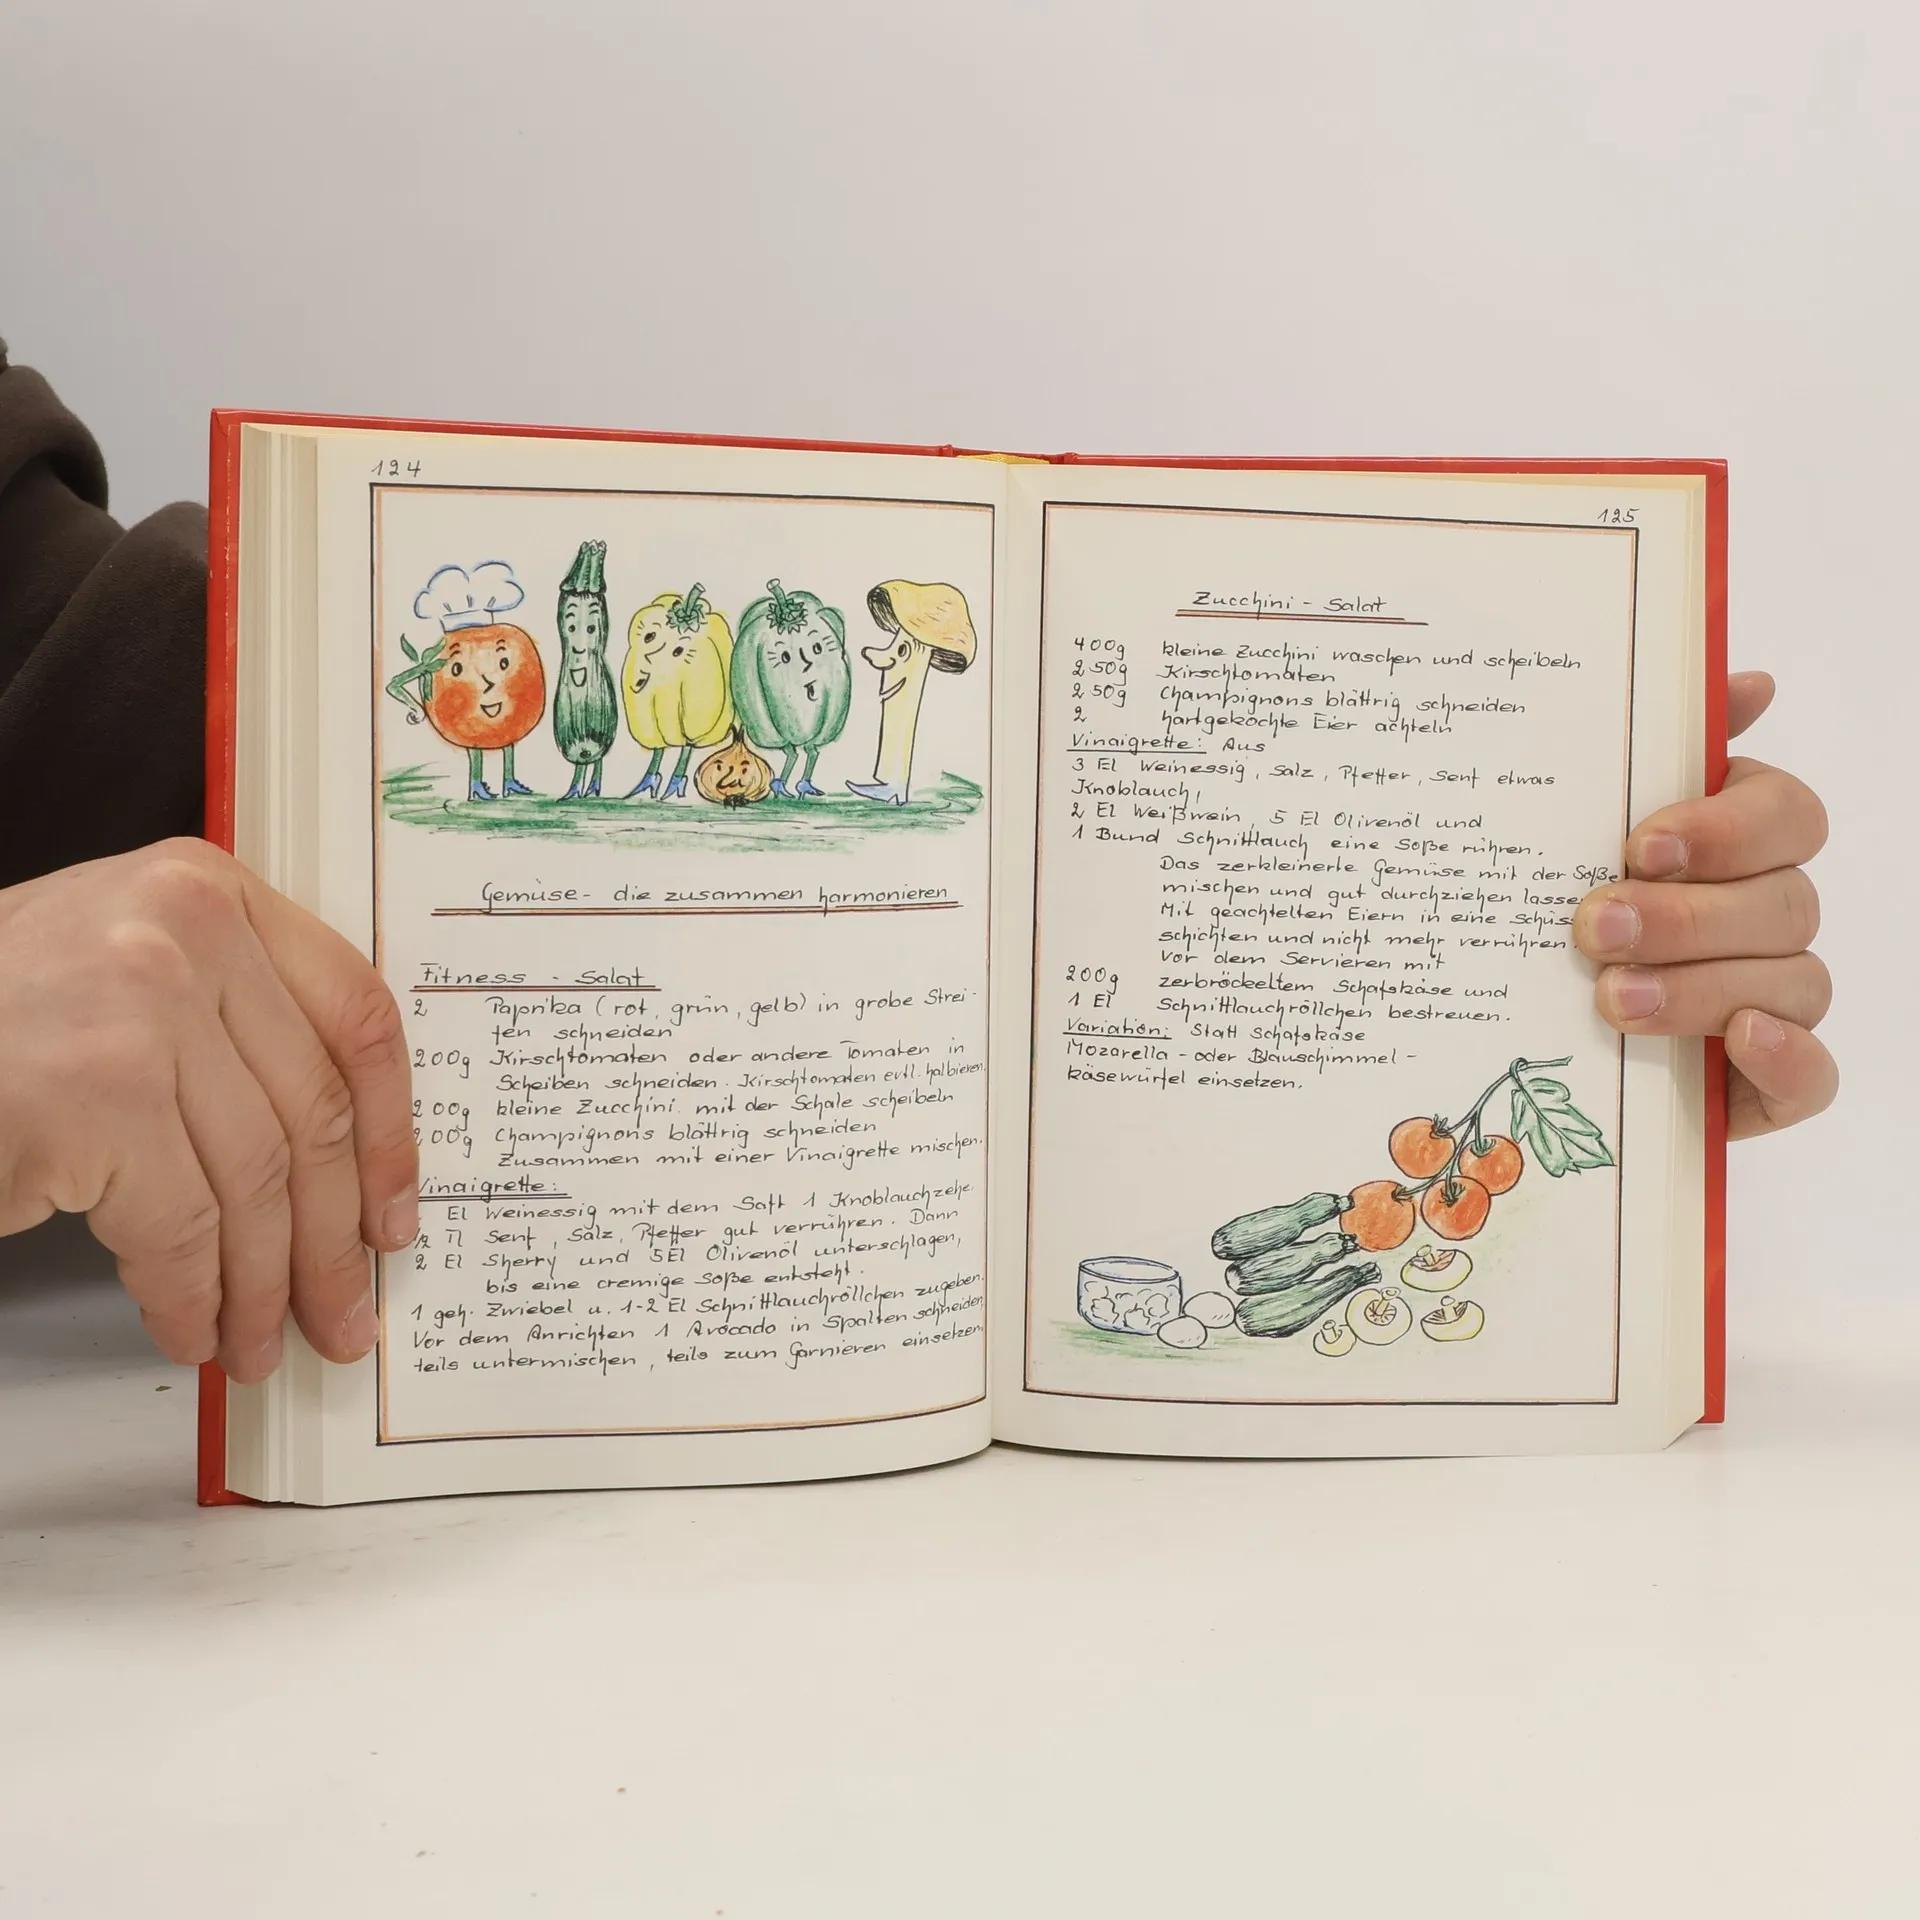 124
Gemüse - die zusammen harmonieren
Fitness - Salat
2 Paprika (rot, grün, gelb) in grobe Strei-
fen schneiden
200g Kirschtomaten oder andere Tomaten in
Scheiben schneiden. Kirschtomaten evtl. halbieren.
200g kleine Zucchini mit der Schale scheibeln
200g Champignons blättrig schneiden
Zusammen mit einer Vinaigrette mischen.
Vinaigrette:
El Weinessig mit dem Saft 1 Knoblauchzehe.
1/2 Tl Senf, Salz, Pfeffer gut verrühren. Dann
2 El Sherry und 5El Olivenöl unterschlagen,
bis eine cremige Soße entsteht.
1 geh. Zwiebel u. 1-2 El Schnittlauchröllchen zugeben.
Vor dem Anrichten 1 Avocado in Spalten schneiden,
teils untermischen, teils zum Garnieren einsetzen
125
Zucchini - Salat
400g kleine Zucchini waschen und scheibeln
250g Kirschtomaten
250g Champignons blättrig schneiden
2 hartgekochte Eier achteln
Vinaigrette: Aus
3 El Weinessig, Salz, Pfeffer, Senf etwas
Knoblauch,
2 El Weißwein, 5 El Olivenöl und
1 Bund Schnittlauch eine Soße rühren.
Das zerkleinerte Gemüse mit der Soße
mischen und gut durchziehen lasse
Mit geachtelten Eiern in eine Schüss
schichten und nicht mehr verrühren.
Vor dem Servieren mit
200g zerbröckeltem Schafskäse und
1 El Schnittlauchröllchen bestreuen.
Variation: Statt Schafskäse
Mozarella - oder Blauschimmel -
käsewürfel einsetzen.